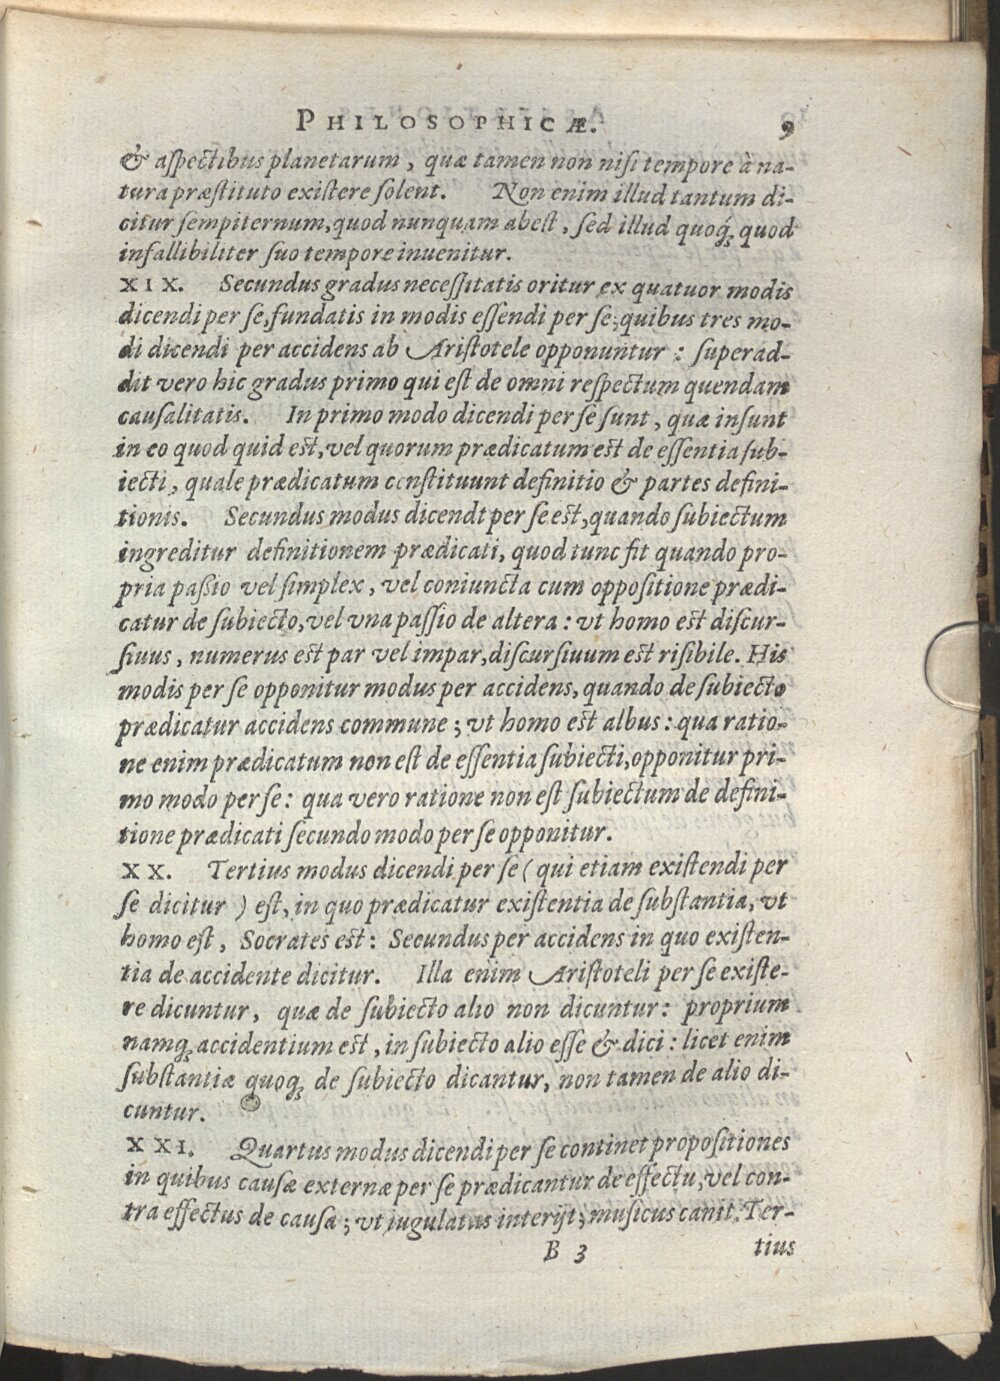 PHILOSOPHICÆ. 9
& aspectibus planetarum, quæ tamen non nisi tempore à na-
tura præstituto existere solent. Non enim illud tantum di-
citur sempiternum, quod nunquam abest, sed illud quoq́; quod
infallibiliter suo tempore inuenitur.
XIX. Secundus gradus necessitatis oritur ex quatuor modis
dicendi per se, fundatis in modis essendi per se; quibus tres mo-
di dicendi per accidens ab Aristotele opponuntur: superad-
dit vero hic gradus primo qui est de omni respectum quendam
causalitatis. In primo modo dicendi per se sunt, quæ insunt
in eo quod quid est, vel quorum prædicatum est de essentia sub-
iecti, quale prædicatum constituunt definitio & partes defini-
tionis. Secundus modus dicendt per se est, quando subiectum
ingreditur definitionem prædicati, quod tunc fit quando pro-
pria passio vel simplex, vel coniuncta cum oppositione prædi-
catur de subiecto, vel vna passio de altera: vt homo est discur-
siuus, numerus est par vel impar, discursiuum est risibile. His
modis per se opponitur modus per accidens, quando de subiecto
prædicatur accidens commune; vt homo est albus: qua ratio-
ne enim prædicatum non est de essentia subiecti, opponitur pri-
mo modo per se: qua vero ratione non est subiectum de defini-
tione prædicati secundo modo per se opponitur.
XX. Tertius modus dicendi per se (qui etiam existendi per
se dicitur) est, in quo prædicatur existentia de substantia, vt
homo est, Socrates est: Secundus per accidens in quo existen-
tia de accidente dicitur. Illa enim Aristoteli per se existe-
re dicuntur, quæ de subiecto alio non dicuntur: proprium
namq; accidentium est, in subiecto alio esse & dici: licet enim
substantiæ quoq; de subiecto dicantur, non tamen de alio di-
cuntur.
XXI. Quartus modus dicendi per se continet propositiones
in quibus causæ externæ per se prædicantur de effectu, vel con-
tra effectus de causa; vt iugulatus interijt; musicus canit. Ter-
B 3 tius